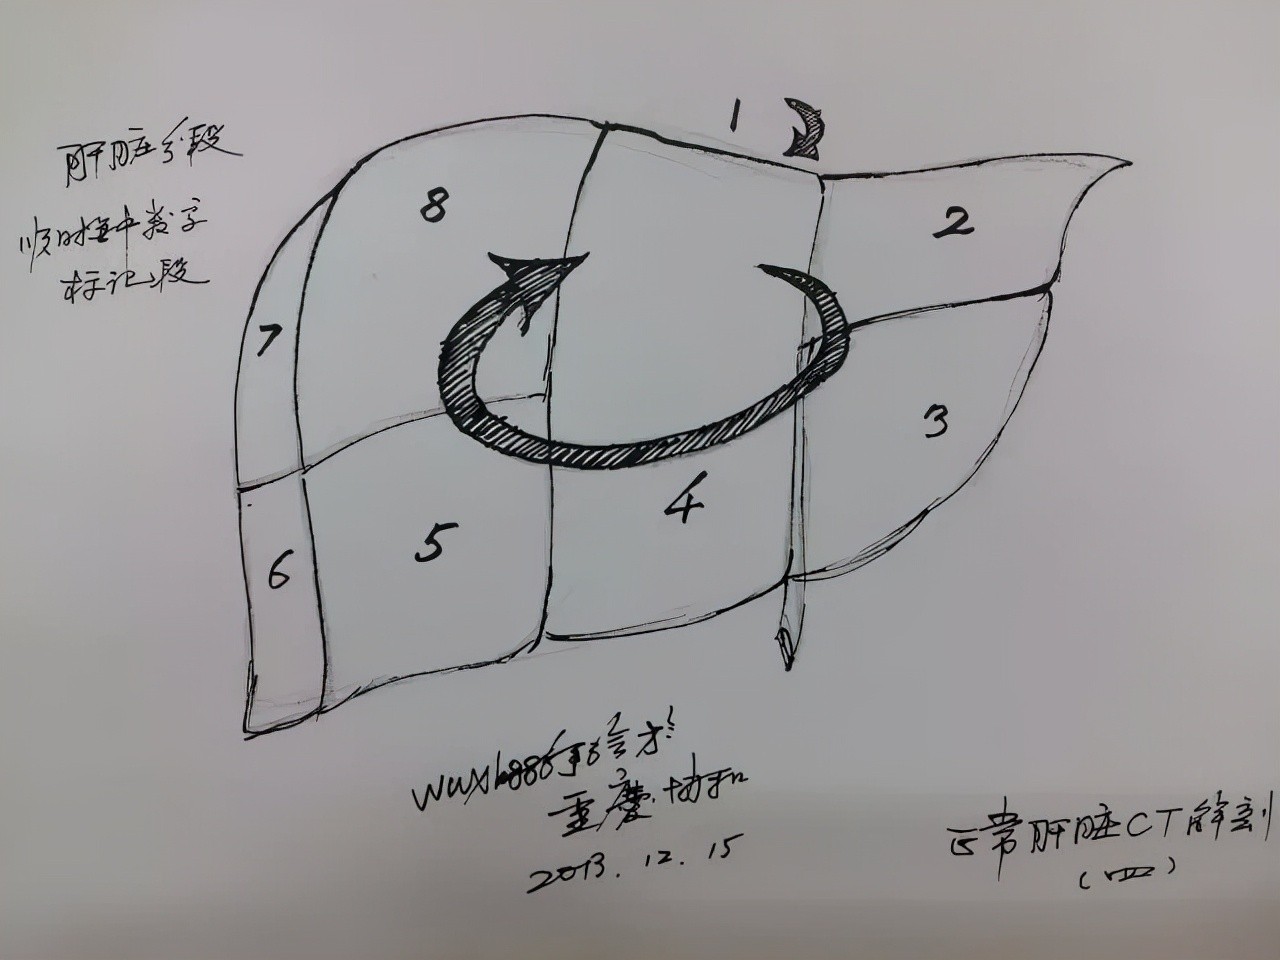 肝脏分段
顺时钟数字
标记段
1
8
2
7
3
4
5
6
手绘于
重庆协和
2013.12.15
正常肝脏CT解剖
(四)